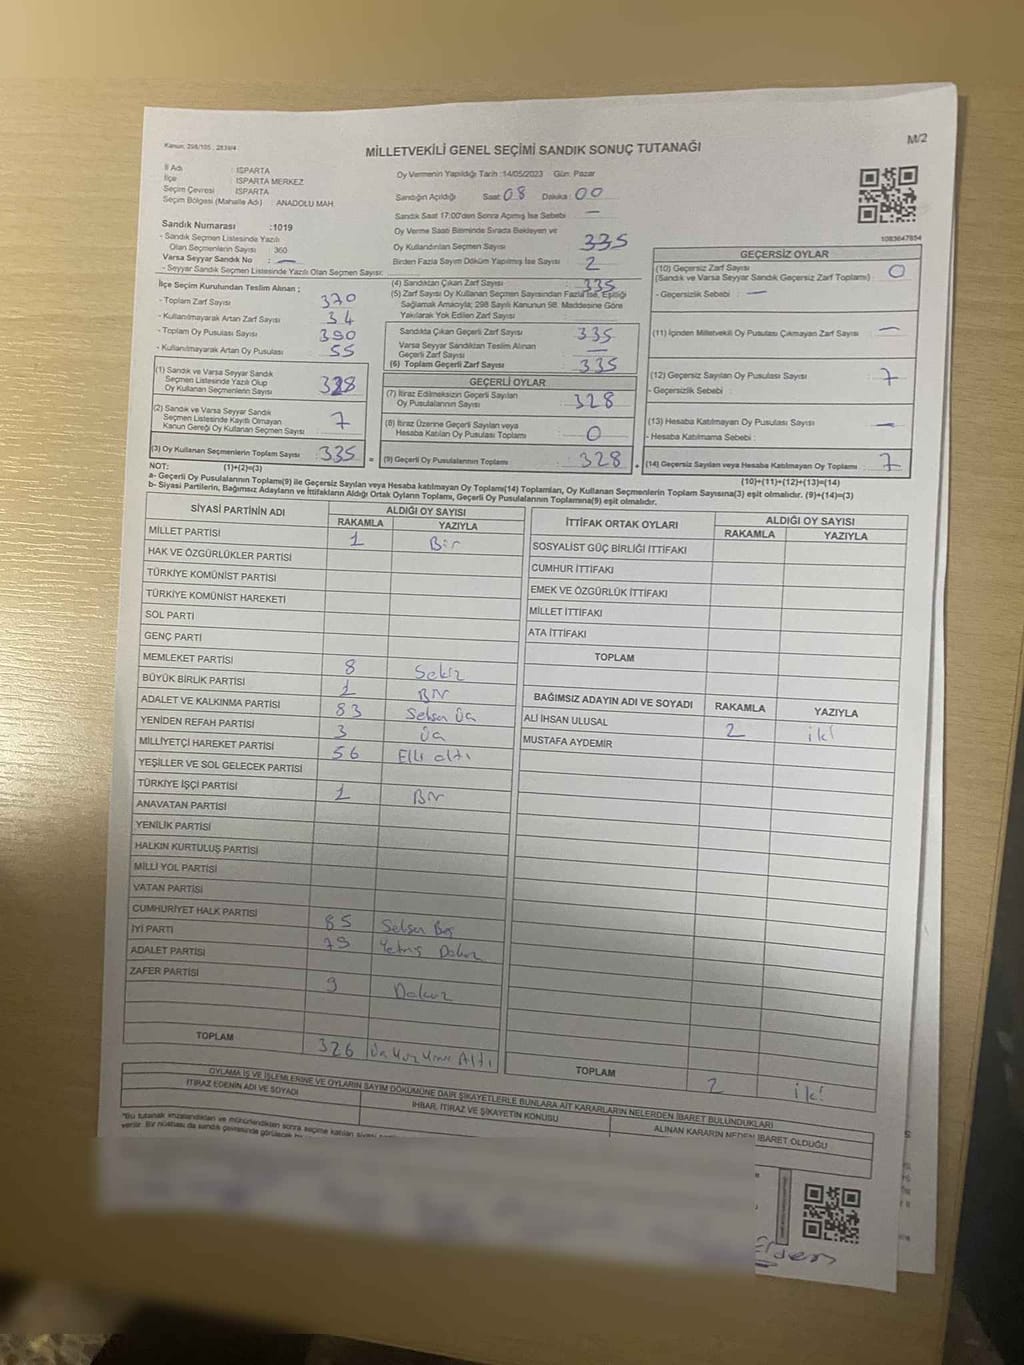 Kanun: 298/105, 2839/4
M/2
MİLLETVEKİLİ GENEL SEÇİMİ SANDIK SONUÇ TUTANAĞI
İl Adı : ISPARTA
İlçe : ISPARTA MERKEZ
Seçim Çevresi : ISPARTA
Seçim Bölgesi (Mahalle Adı) : ANADOLU MAH.
Sandık Numarası :1019
- Sandık Seçmen Listesinde Yazılı
Olan Seçmenlerin Sayısı : 360
Varsa Seyyar Sandık No : —
- Seyyar Sandık Seçmen Listesinde Yazılı Olan Seçmen Sayısı:
Oy Vermenin Yapıldığı Tarih :14/05/2023 Gün: Pazar
Sandığın Açıldığı Saat: 08 Dakika : 00
Sandık Saat 17:00'den Sonra Açılmış İse Sebebi —
Oy Verme Saati Bitiminde Sırada Bekleyen ve
Oy Kullandırılan Seçmen Sayısı 335
Birden Fazla Sayım Döküm Yapılmış İse Sayısı 2
1083647854
İlçe Seçim Kurulundan Teslim Alınan ;
- Toplam Zarf Sayısı 370
- Kullanılmayarak Artan Zarf Sayısı 34
- Toplam Oy Pusulası Sayısı 390
- Kullanılmayarak Artan Oy Pusulası 55
(1) Sandık ve Varsa Seyyar Sandık
Seçmen Listesinde Yazılı Olup
Oy Kullanan Seçmenlerin Sayısı 328
(2) Sandık ve Varsa Seyyar Sandık
Seçmen Listesinde Kayıtlı Olmayan
Kanun Gereği Oy Kullanan Seçmen Sayısı 7
(3) Oy Kullanan Seçmenlerin Toplam Sayısı 335 =
(4) Sandıktan Çıkan Zarf Sayısı 335
(5) Zarf Sayısı Oy Kullanan Seçmen Sayısından Fazla İse, Eşitliği
Sağlamak Amacıyla; 298 Sayılı Kanunun 98. Maddesine Göre
Yakılarak Yok Edilen Zarf Sayısı :
Sandıkta Çıkan Geçerli Zarf Sayısı 335
Varsa Seyyar Sandıktan Teslim Alınan
Geçerli Zarf Sayısı —
(6) Toplam Geçerli Zarf Sayısı 335
GEÇERLİ OYLAR
(7) İtiraz Edilmeksizin Geçerli Sayılan
Oy Pusulalarının Sayısı 328
(8) İtiraz Üzerine Geçerli Sayılan veya
Hesaba Katılan Oy Pusulası Toplamı 0
(9) Geçerli Oy Pusulalarının Toplamı 328 +
GEÇERSİZ OYLAR
(10) Geçersiz Zarf Sayısı 0
(Sandık ve Varsa Seyyar Sandık Geçersiz Zarf Toplamı) :
- Geçersizlik Sebebi : —
(11) İçinden Milletvekili Oy Pusulası Çıkmayan Zarf Sayısı —
(12) Geçersiz Sayılan Oy Pusulası Sayısı 7
- Geçersizlik Sebebi :
(13) Hesaba Katılmayan Oy Pusulası Sayısı —
- Hesaba Katılmama Sebebi :
(14) Geçersiz Sayılan veya Hesaba Katılmayan Oy Toplamı 7
NOT: (1)+(2)=(3)
(10)+(11)+(12)+(13)=(14)
a- Geçerli Oy Pusulalarının Toplamı(9) ile Geçersiz Sayılan veya Hesaba Katılmayan Oy Toplamı(14) Toplamları, Oy Kullanan Seçmenlerin Toplam Sayısına(3) eşit olmalıdır. (9)+(14)=(3)
b- Siyasi Partilerin, Bağımsız Adayların ve İttifakların Aldığı Ortak Oyların Toplamı, Geçerli Oy Pusulalarının Toplamına(9) eşit olmalıdır.
SİYASİ PARTİNİN ADI ALDIĞI OY SAYISI
RAKAMLA YAZIYLA
MİLLET PARTİSİ 1 Bir
HAK VE ÖZGÜRLÜKLER PARTİSİ
TÜRKİYE KOMÜNİST PARTİSİ
TÜRKİYE KOMÜNİST HAREKETİ
SOL PARTİ
GENÇ PARTİ
MEMLEKET PARTİSİ 8 Sekiz
BÜYÜK BİRLİK PARTİSİ 1 Bir
ADALET VE KALKINMA PARTİSİ 83 Seksen Üç
YENİDEN REFAH PARTİSİ 3 Üç
MİLLİYETÇİ HAREKET PARTİSİ 56 Elli altı
YEŞİLLER VE SOL GELECEK PARTİSİ
TÜRKİYE İŞÇİ PARTİSİ 1 Bir
ANAVATAN PARTİSİ
YENİLİK PARTİSİ
HALKIN KURTULUŞ PARTİSİ
MİLLİ YOL PARTİSİ
VATAN PARTİSİ
CUMHURİYET HALK PARTİSİ 85 Seksen Beş
İYİ PARTİ 79 Yetmiş Dokuz
ADALET PARTİSİ
ZAFER PARTİSİ 9 Dokuz
TOPLAM 326 Üç Yüz Yirmi Altı
İTTİFAK ORTAK OYLARI ALDIĞI OY SAYISI
RAKAMLA YAZIYLA
SOSYALİST GÜÇ BİRLİĞİ İTTİFAKI
CUMHUR İTTİFAKI
EMEK VE ÖZGÜRLÜK İTTİFAKI
MİLLET İTTİFAKI
ATA İTTİFAKI
TOPLAM
BAĞIMSIZ ADAYIN ADI VE SOYADI RAKAMLA YAZIYLA
ALİ İHSAN ULUSAL 2 iki
MUSTAFA AYDEMİR
TOPLAM 2 iki
OYLAMA İŞ VE İŞLEMLERİNE VE OYLARIN SAYIM DÖKÜMÜNE DAİR ŞİKAYETLERLE BUNLARA AİT KARARLARIN NELERDEN İBARET BULUNDUKLARI
İTİRAZ EDENİN ADI VE SOYADI İHBAR, İTİRAZ VE ŞİKAYETİN KONUSU ALINAN KARARIN NEDEN İBARET OLDUĞU
*Bu tutanak imzalandıktan ve mühürlendikten sonra seçime katılan siyasi
verilir. Bir nüshası da sandık çevresinde görülecek
Erdem